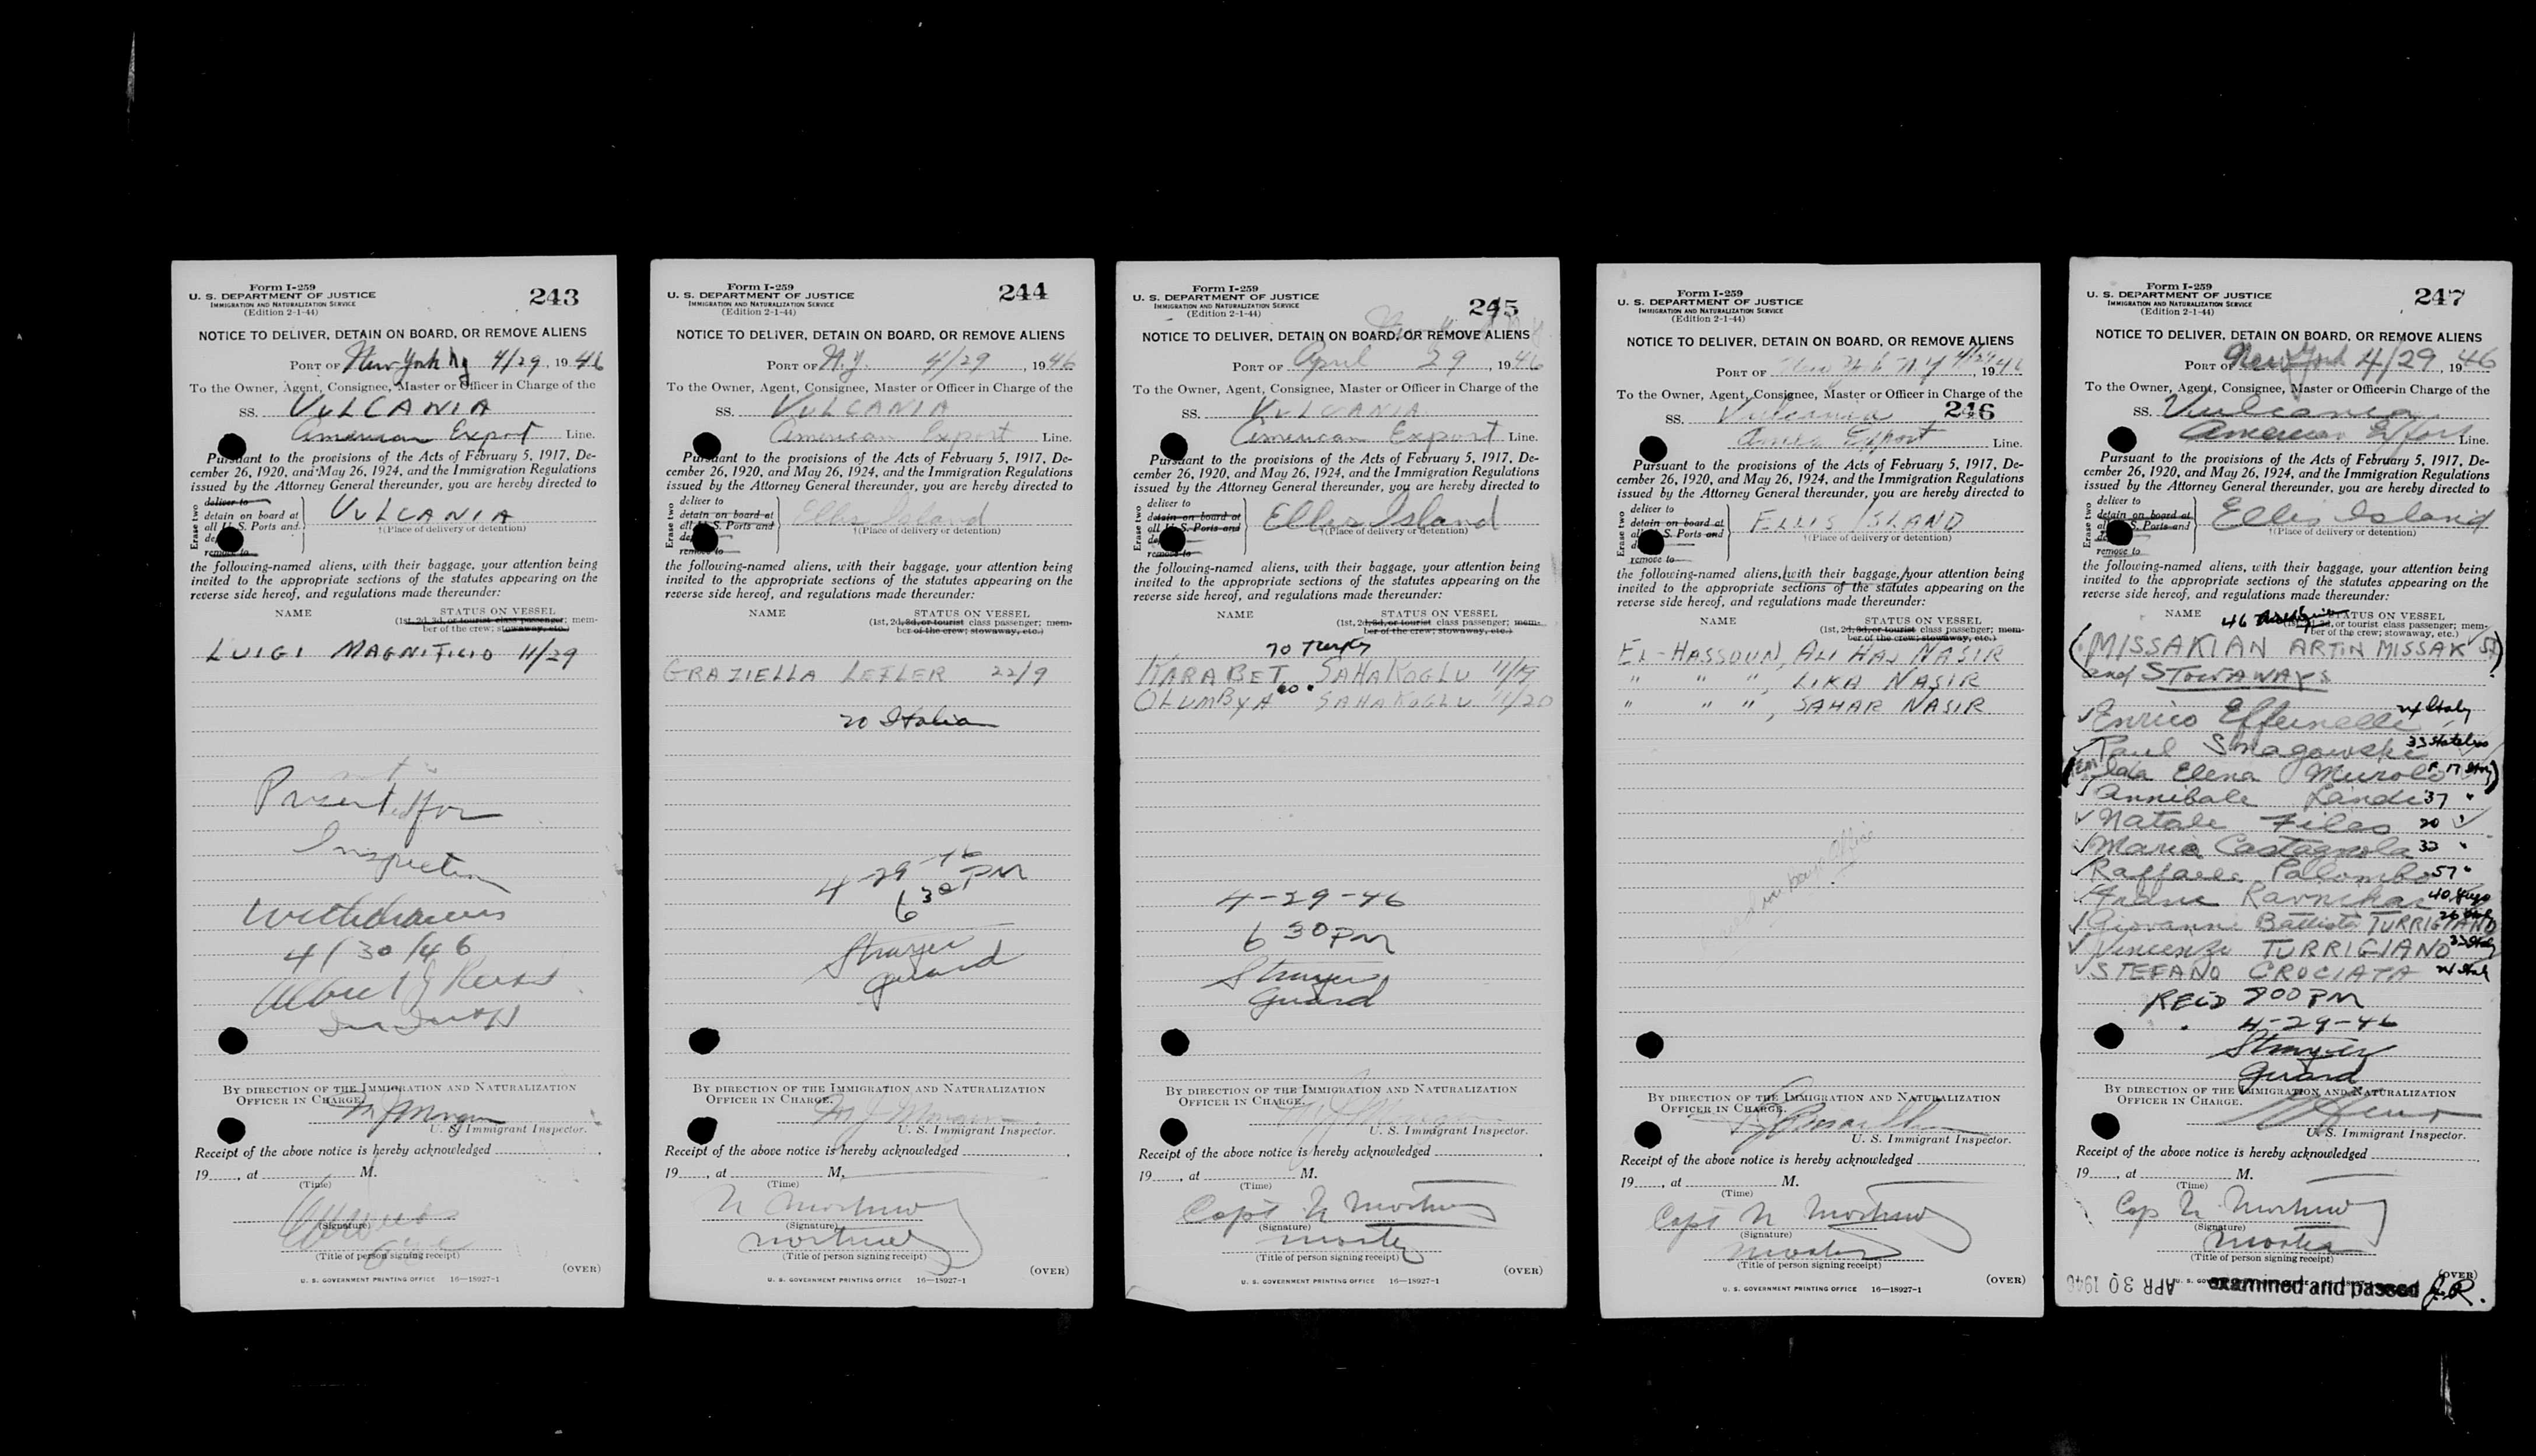 Form I-259
U. S. DEPARTMENT OF JUSTICE
IMMIGRATION AND NATURALIZATION SERVICE
(Edition 2-1-44)
243
NOTICE TO DELIVER, DETAIN ON BOARD, OR REMOVE ALIENS
PORT OF New York Ny 4/29, 1946
To the Owner, Agent, Consignee, Master or Officer in Charge of the
SS. VULCANIA
American Export Line.
Pursuant to the provisions of the Acts of February 5, 1917, De-
cember 26, 1920, and May 26, 1924, and the Immigration Regulations
issued by the Attorney General thereunder, you are hereby directed to
Erase two
deliver to
detain on board at
all U. S. Ports and
remove to
VULCANIA
†(Place of delivery or detention)
the following-named aliens, with their baggage, your attention being
invited to the appropriate sections of the statutes appearing on the
reverse side hereof, and regulations made thereunder:
NAME STATUS ON VESSEL
(1st, 2d, 3d, or tourist class passenger; mem-
ber of the crew; stowaway, etc.)
LUIGI MAGNIFICIO 11/29
not
Presented for
Inspection
Withdrawn
4/30/46
BY DIRECTION OF THE IMMIGRATION AND NATURALIZATION
OFFICER IN CHARGE.
M J Morgan
U. S. Immigrant Inspector.
Receipt of the above notice is hereby acknowledged
19____, at ____ M.
(Time)
(Signature)
(Title of person signing receipt)
(OVER)
U. S. GOVERNMENT PRINTING OFFICE 16—18927-1
Form I-259
U. S. DEPARTMENT OF JUSTICE
IMMIGRATION AND NATURALIZATION SERVICE
(Edition 2-1-44)
244
NOTICE TO DELIVER, DETAIN ON BOARD, OR REMOVE ALIENS
PORT OF N.Y. 4/29, 1946
To the Owner, Agent, Consignee, Master or Officer in Charge of the
SS. VULCANIA
American Export Line.
Pursuant to the provisions of the Acts of February 5, 1917, De-
cember 26, 1920, and May 26, 1924, and the Immigration Regulations
issued by the Attorney General thereunder, you are hereby directed to
Erase two
deliver to
detain on board at
all U. S. Ports and
remove to
Ellis Island
†(Place of delivery or detention)
the following-named aliens, with their baggage, your attention being
invited to the appropriate sections of the statutes appearing on the
reverse side hereof, and regulations made thereunder:
NAME STATUS ON VESSEL
(1st, 2d, 3d, or tourist class passenger; mem-
ber of the crew; stowaway, etc.)
GRAZIELLA LEFLER 22/9
20 Italian
4-29-46
6 30 PM
Strayer
Guard
BY DIRECTION OF THE IMMIGRATION AND NATURALIZATION
OFFICER IN CHARGE.
M J Morgan
U. S. Immigrant Inspector.
Receipt of the above notice is hereby acknowledged
19____, at ____ M.
(Time)
(Signature)
(Title of person signing receipt)
(OVER)
U. S. GOVERNMENT PRINTING OFFICE 16—18927-1
Form I-259
U. S. DEPARTMENT OF JUSTICE
IMMIGRATION AND NATURALIZATION SERVICE
(Edition 2-1-44)
245
NOTICE TO DELIVER, DETAIN ON BOARD, OR REMOVE ALIENS
PORT OF April 29, 1946
To the Owner, Agent, Consignee, Master or Officer in Charge of the
SS. VULCANIA
American Export Line.
Pursuant to the provisions of the Acts of February 5, 1917, De-
cember 26, 1920, and May 26, 1924, and the Immigration Regulations
issued by the Attorney General thereunder, you are hereby directed to
Erase two
deliver to
detain on board at
all U. S. Ports and
remove to
Ellis Island
†(Place of delivery or detention)
the following-named aliens, with their baggage, your attention being
invited to the appropriate sections of the statutes appearing on the
reverse side hereof, and regulations made thereunder:
NAME STATUS ON VESSEL
(1st, 2d, 3d, or tourist class passenger; mem-
ber of the crew; stowaway, etc.)
70 Turkey
KARABET SAHAKOGLU 11/19
OLUMBYA 60 " SAHAKOGLU 11/20
4-29-46
6 30 PM
Strayer
Guard
BY DIRECTION OF THE IMMIGRATION AND NATURALIZATION
OFFICER IN CHARGE.
M J Morgan
U. S. Immigrant Inspector.
Receipt of the above notice is hereby acknowledged
19____, at ____ M.
(Time)
Capt N
(Signature)
(Title of person signing receipt)
(OVER)
U. S. GOVERNMENT PRINTING OFFICE 16—18927-1
Form I-259
U. S. DEPARTMENT OF JUSTICE
IMMIGRATION AND NATURALIZATION SERVICE
(Edition 2-1-44)
NOTICE TO DELIVER, DETAIN ON BOARD, OR REMOVE ALIENS
PORT OF New York N.Y 4/29, 1946
To the Owner, Agent, Consignee, Master or Officer in Charge of the
SS. Vulcania 246
Amer Export Line.
Pursuant to the provisions of the Acts of February 5, 1917, De-
cember 26, 1920, and May 26, 1924, and the Immigration Regulations
issued by the Attorney General thereunder, you are hereby directed to
Erase two
deliver to
detain on board at
all U. S. Ports and
remove to
ELLIS ISLAND
†(Place of delivery or detention)
the following-named aliens, with their baggage, your attention being
invited to the appropriate sections of the statutes appearing on the
reverse side hereof, and regulations made thereunder:
NAME STATUS ON VESSEL
(1st, 2d, 3d, or tourist class passenger; mem-
ber of the crew; stowaway, etc.)
EL-HASSOUN, ALI HAJ NASIR
" " ", LIKA NASIR
" " ", SAHAR NASIR
BY DIRECTION OF THE IMMIGRATION AND NATURALIZATION
OFFICER IN CHARGE.
U. S. Immigrant Inspector.
Receipt of the above notice is hereby acknowledged
19____, at ____ M.
(Time)
Capt N
(Signature)
(Title of person signing receipt)
(OVER)
U. S. GOVERNMENT PRINTING OFFICE 16—18927-1
Form I-259
U. S. DEPARTMENT OF JUSTICE
IMMIGRATION AND NATURALIZATION SERVICE
(Edition 2-1-44)
247
NOTICE TO DELIVER, DETAIN ON BOARD, OR REMOVE ALIENS
PORT OF New York 4/29, 1946
To the Owner, Agent, Consignee, Master or Officer in Charge of the
SS. Vulcania
American Export Line.
Pursuant to the provisions of the Acts of February 5, 1917, De-
cember 26, 1920, and May 26, 1924, and the Immigration Regulations
issued by the Attorney General thereunder, you are hereby directed to
Erase two
deliver to
detain on board at
all U. S. Ports and
remove to
Ellis Island
†(Place of delivery or detention)
the following-named aliens, with their baggage, your attention being
invited to the appropriate sections of the statutes appearing on the
reverse side hereof, and regulations made thereunder:
NAME 46 STATUS ON VESSEL
(1st, 2d, 3d, or tourist class passenger; mem-
ber of the crew; stowaway, etc.)
(MISSAKIAN ARTIN MISSAK)
and STOWAWAYS
Enrico 24 Italy
Paul Smagowski 33 Stateless
Ida Elena Murolo F 17 Italy)
Annibale Landi 37 "
Natale Fileo 20 "
Maria Castagnola 32 "
Raffaele Palombo 57 "
Ravnikar 40 Yugo
Giovanni Battista TURRIGIANO 26 Italy
Vincenzo TURRIGIANO 33 Italy
STEFANO CROCIATA 24 Ital
REC'D 900 PM
4-29-46
Strayer
Guard
BY DIRECTION OF THE IMMIGRATION AND NATURALIZATION
OFFICER IN CHARGE.
U. S. Immigrant Inspector.
Receipt of the above notice is hereby acknowledged
19____, at ____ M.
(Time)
Cap N
(Signature)
(Title of person signing receipt)
(OVER)
APR 30 1946
examined and passed J.R.